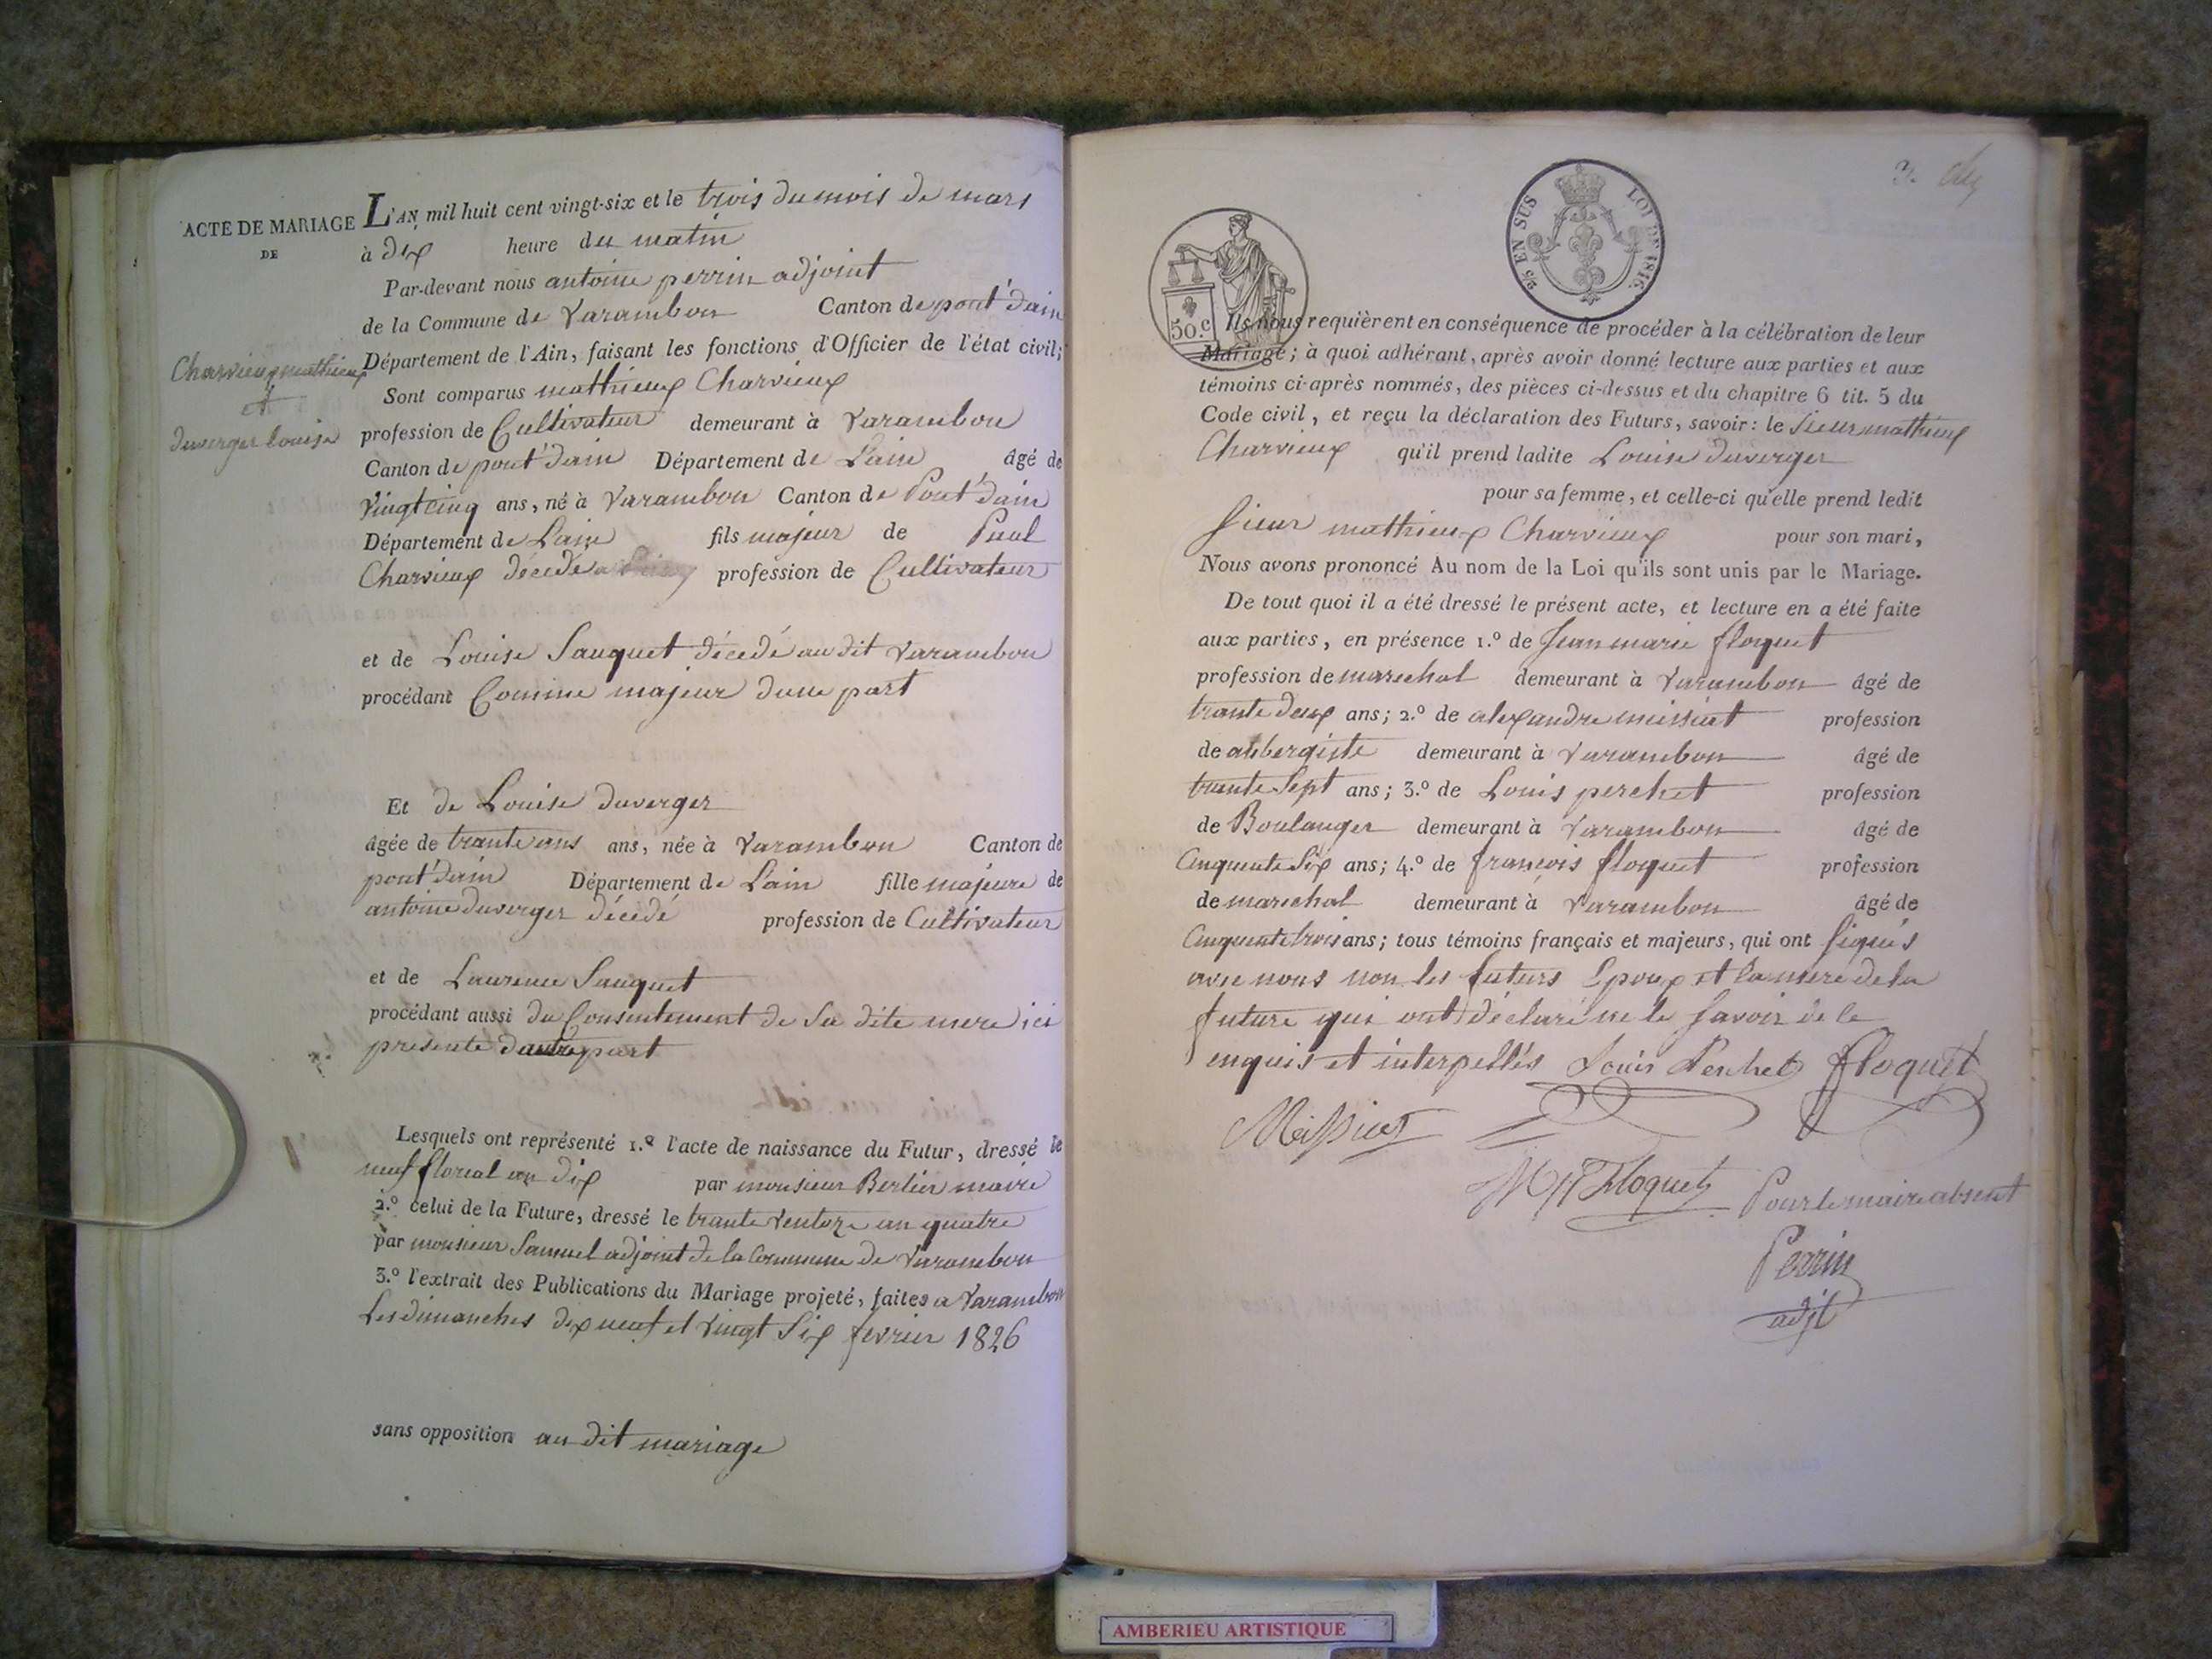 ACTE DE MARIAGE
DE
Charvieux mathieux
et
duverger louise
L'AN mil huit cent vingt-six et le trois du mois de mars
à dix heure du matin
Par-devant nous antoine perrin adjoint
de la Commune de Varambon Canton de pont d'ain
Département de l'Ain, faisant les fonctions d'Officier de l'état civil;
Sont comparus mathieux Charvieux
profession de Cultivateur demeurant à Varambon
Canton de pont d'ain Département de Lain âgé de
Vingt cinq ans, né à Varambon Canton de Pont d'ain
Département de Lain fils majeur de Paul
Charvieux décédé profession de Cultivateur
et de Louise Sauquet décédé au dit Varambon
procédant Comme majeur dune part
Et de Louise duverger
âgée de trante ans ans, née à Varambon Canton de
pont d'ain Département de Lain fille majeure de
antoine duverger décédé profession de Cultivateur
et de Laurence Sauquet
procédant aussi du Consentement de Sa dite mere ici
presente dautre part
Lesquels ont représenté 1.º l'acte de naissance du Futur, dressé le
neuf florial an dix par monsieur Berlier maire
2.º celui de la Future, dressé le trante Ventoze an quatre
par monsieur Samuel adjoint de la Commune de Varambon
3.º l'extrait des Publications du Mariage projeté, faites a Varambon
Les dimanches dix neuf et Vingt Six fevrier 1826
sans opposition au dit mariage
3.
2/5 EN SUS LOI DE 1816
50.c
Ils nous requièrent en conséquence de procéder à la célébration de leur
Mariage; à quoi adhérant, après avoir donné lecture aux parties et aux
témoins ci-après nommés, des pièces ci-dessus et du chapitre 6 tit. 5 du
Code civil, et reçu la déclaration des Futurs, savoir: le Sieur mathieux
Charvieux qu'il prend ladite Louise duverger
pour sa femme, et celle-ci qu'elle prend ledit
Sieur mathieux Charvieux pour son mari,
Nous avons prononcé Au nom de la Loi qu'ils sont unis par le Mariage.
De tout quoi il a été dressé le présent acte, et lecture en a été faite
aux parties, en présence 1.º de Jean marie floquet
profession de marechal demeurant à Varambon âgé de
trante deux ans; 2.º de alexandre missiat profession
de aubergiste demeurant à Varambon âgé de
trante Sept ans; 3.º de Louis perchet profession
de Boulanger demeurant à Varambon âgé de
Cinquente Six ans; 4.º de françois floquet profession
de marechal demeurant à Varambon âgé de
Cinquente trois ans; tous témoins français et majeurs, qui ont Signés
avec nous non les futurs Epoux et la mere de la
future qui ont déclaré ne le Savoir de ce
enquis et interpellés Louis Perchet Floquet
Missiat
Floquet Pour le maire absent
Perrin
adjt
AMBERIEU ARTISTIQUE